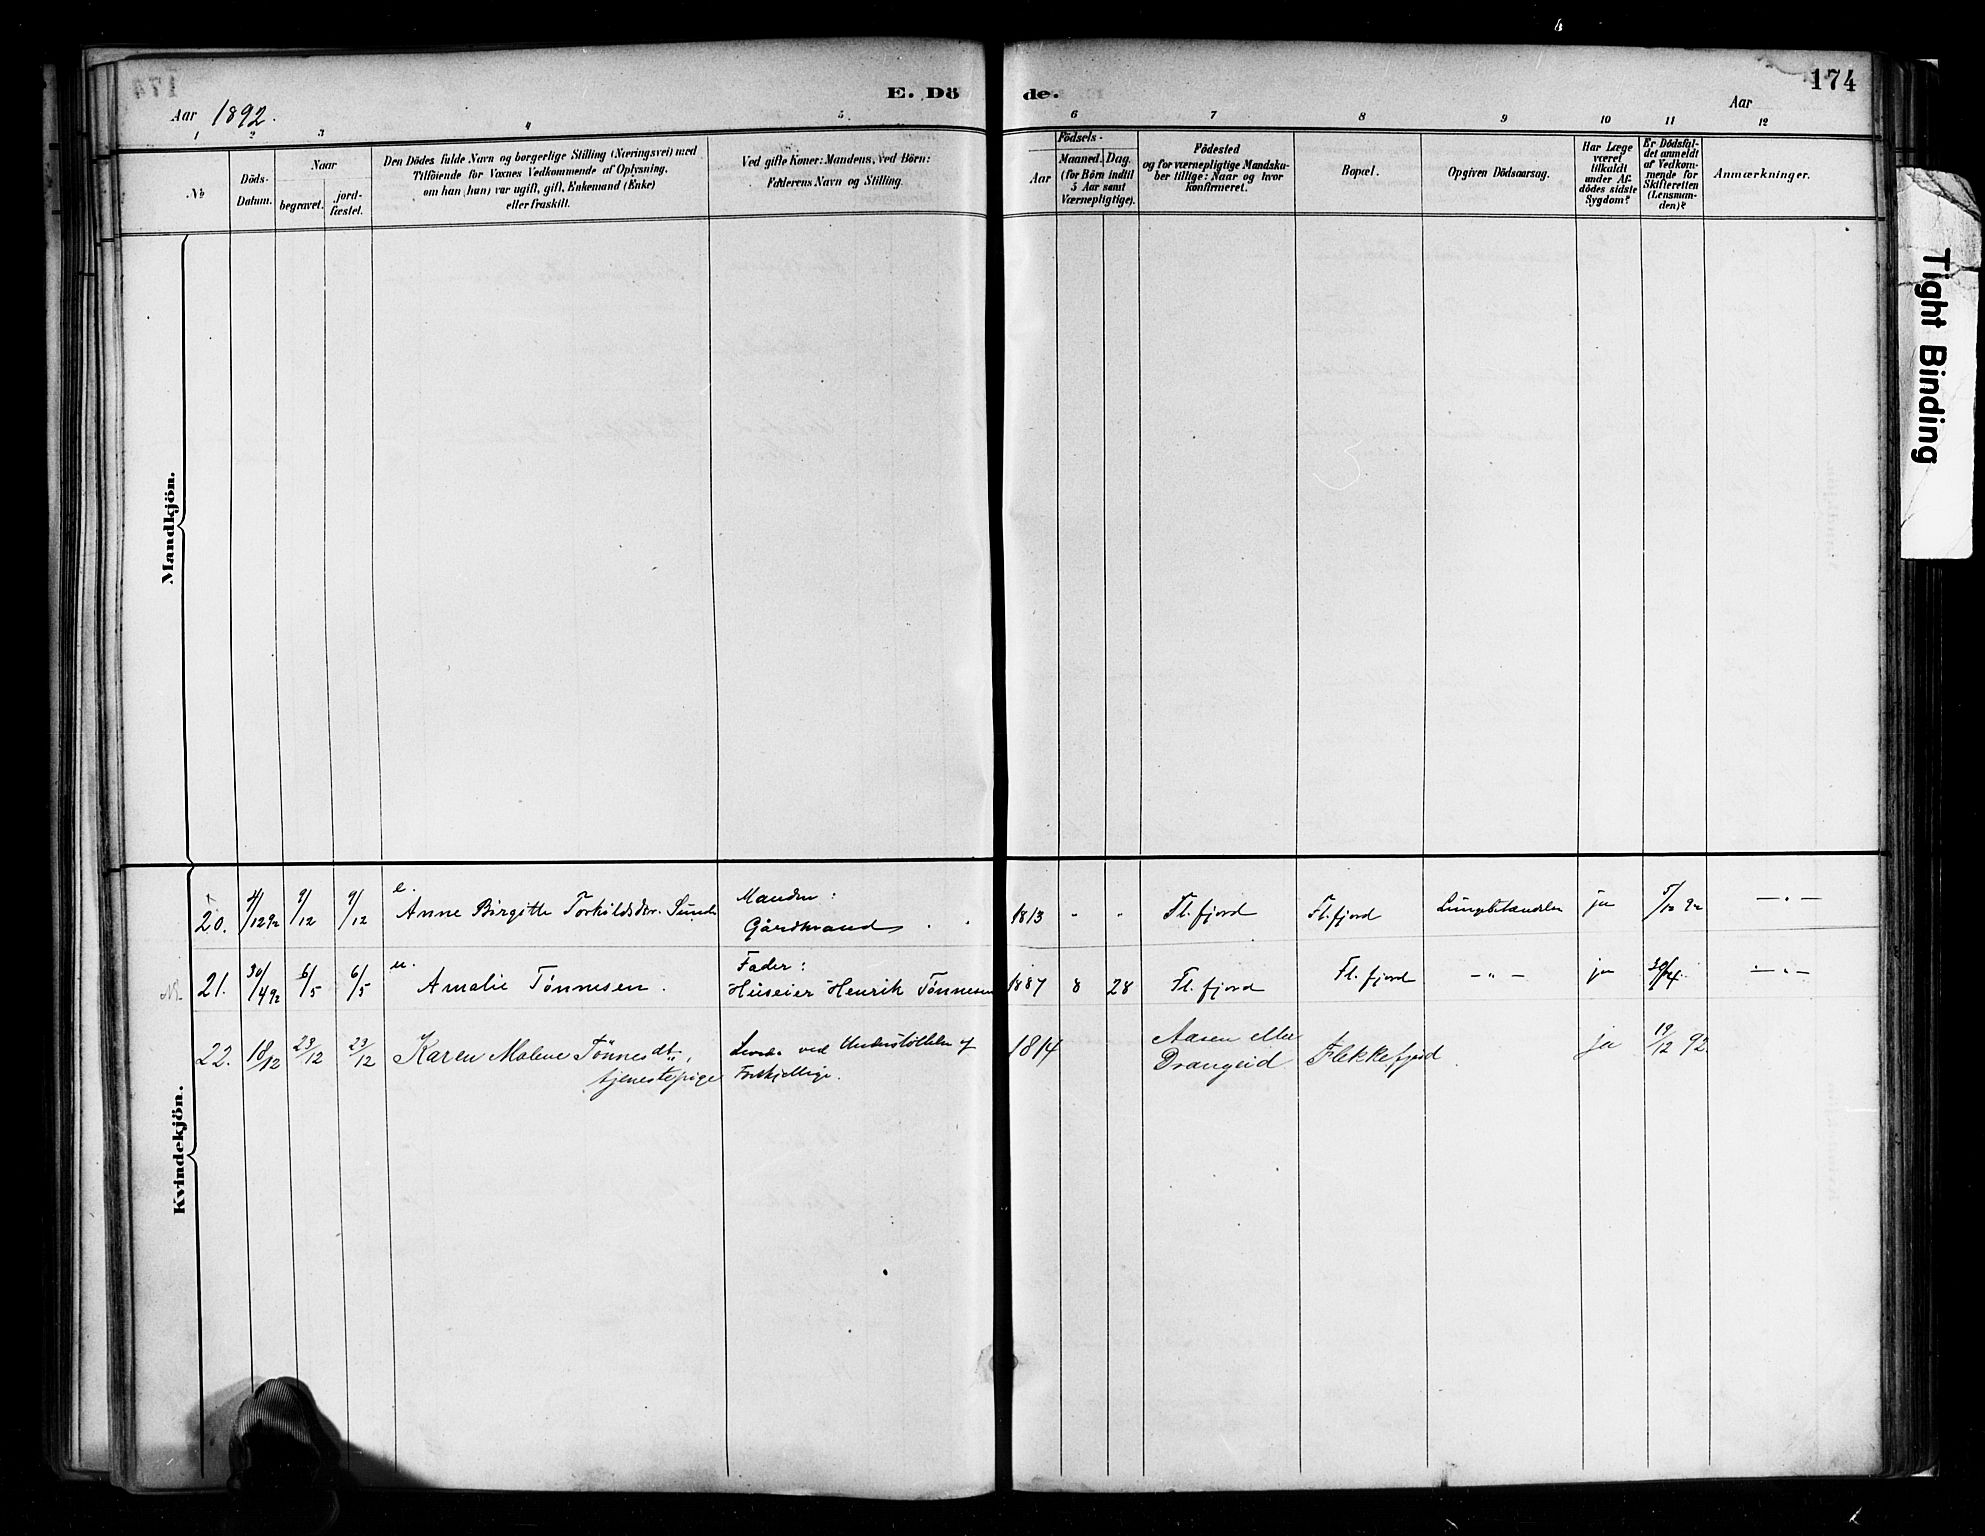 174
Aar 1892.
E. Dö
de.
Aar
1
2
3
4
5.
6
7
8
9
10
11
12
№
Döds-
Datum.
Naar
begravet.
jord-
fæstet.
Den Dödes fulde Navn og borgerlige Stilling (Næringsvei) med
Tilföiende for Voxnes Vedkommende af Oplysning,
om han (hun) var ugift, gift, Enkemand (Enke)
eller fraskilt.
Ved gifte Koner: Mandens, ved Börn:
Faderens Navn og Stilling.
Födsels-
Aar
Maaned.
Dag.
(for Börn indtil
5 Aar samt
Værnepligtige).
Födested
og for værnepligtige Mandsku-
ber tillige: Naar og hvor
konfirmeret.
Bopæl.
Opgiven Dödsaarsag.
Har Læge
været
tilkaldt
under Af-
dödes sidste
Sygdom?
Er Dödsfal-
det anmeldt
af Vedkom-
mende for
Skifteretten
(Lensman-
den)?
Anmærkninger.
Tight Binding
Mandkjön.
Kvindekjön.
20. 4/12 92 9/12 9/12 e. Anne Birgitte Torkildsdtr. Sunde Manden:
Gårdbrand 1813 " " Fl.fjord Fl.fjord Lungebetændelse ja 5/12 92 — " —
21. 30/4 92 6/5 6/5 u. Amalie Tönnesen. Fader:
Huseier Henrik Tönnesen 1887 8 28 Fl.fjord Fl.fjord — " — ja 30/4. — " —
22. 18/12 23/12 23/12 Karen Malene Tönnesdt.,
tjenestepige
Levede ved Understöttelse af
Forskjellige.
1814
Aasen eller
Drangeid
Flekkefjord.
ja 19/12 92